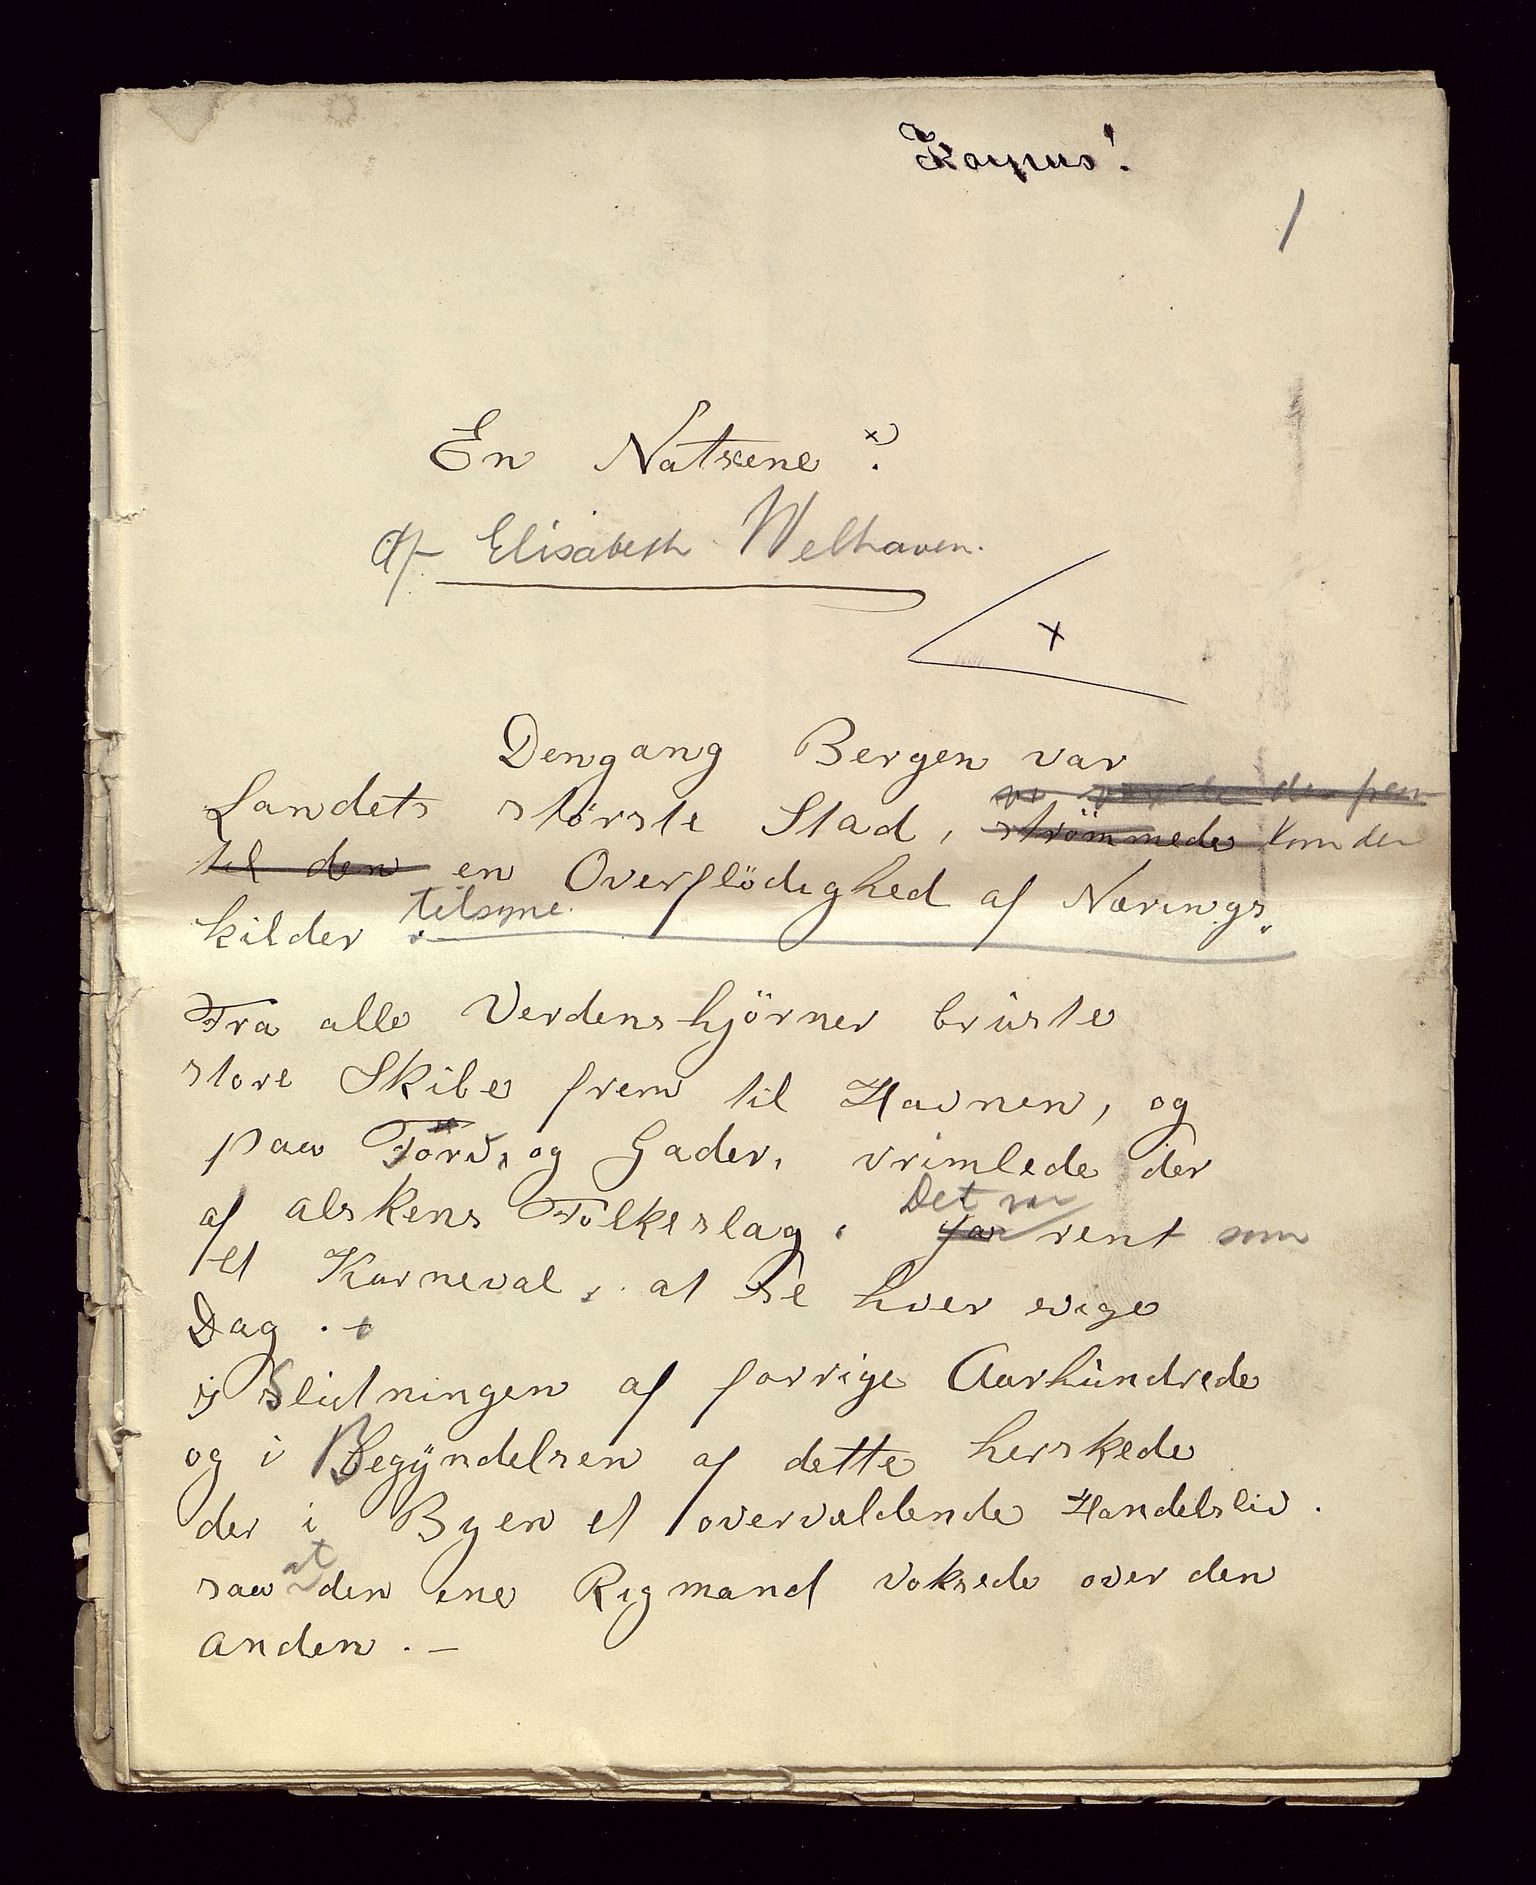 Korpus!
1
En Natscene x).
Af Elisabeth Welhaven.
x
Dengang Bergen var
Landets störste Stad, strömmede kom der
til den en Overflödighed af Nærings-
kilder tilsyne.
Fra alle Verdenshjörner bruste
store Skibe frem til Havnen, og
paa Torv, og Gader, vrimlede der
af alskens Folkeslag, Det var rent som
et Karneval, at se hver evige
Dag.
i Slutningen af forrige Aarhundrede
og i Begyndelsen af dette herskede
der i Byen et overvældende Handelsliv.
saa at den ene Rigmand voksede over den
anden. —